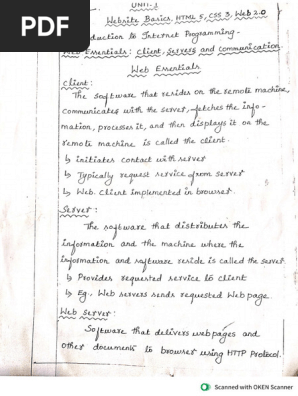 PDF
UNIT-1
Website Basics, HTML 5, CSS 3, Web 2.0
duction to Internet Programming -
Web Essentials: Client, Servers and Communication.
Web Essentials
Client:
The software that resides on the remote machine,
communicates with the server, fetches the info-
mation, processes it, and then displays it on the
remote machine is called the client.
↳ initiates contact with server
↳ Typically request service from server
↳ Web. Client implemented in browser.
Server:
The software that distributes the
information and the machine where the
information and software reside is called the server.
↳ Provides requested service to client
↳ Eg., Web servers sends requested Web page.
Web Server:
Software that delivers webpages and
other documents to browser using HTTP Protocol.
Scanned with OKEN Scanner